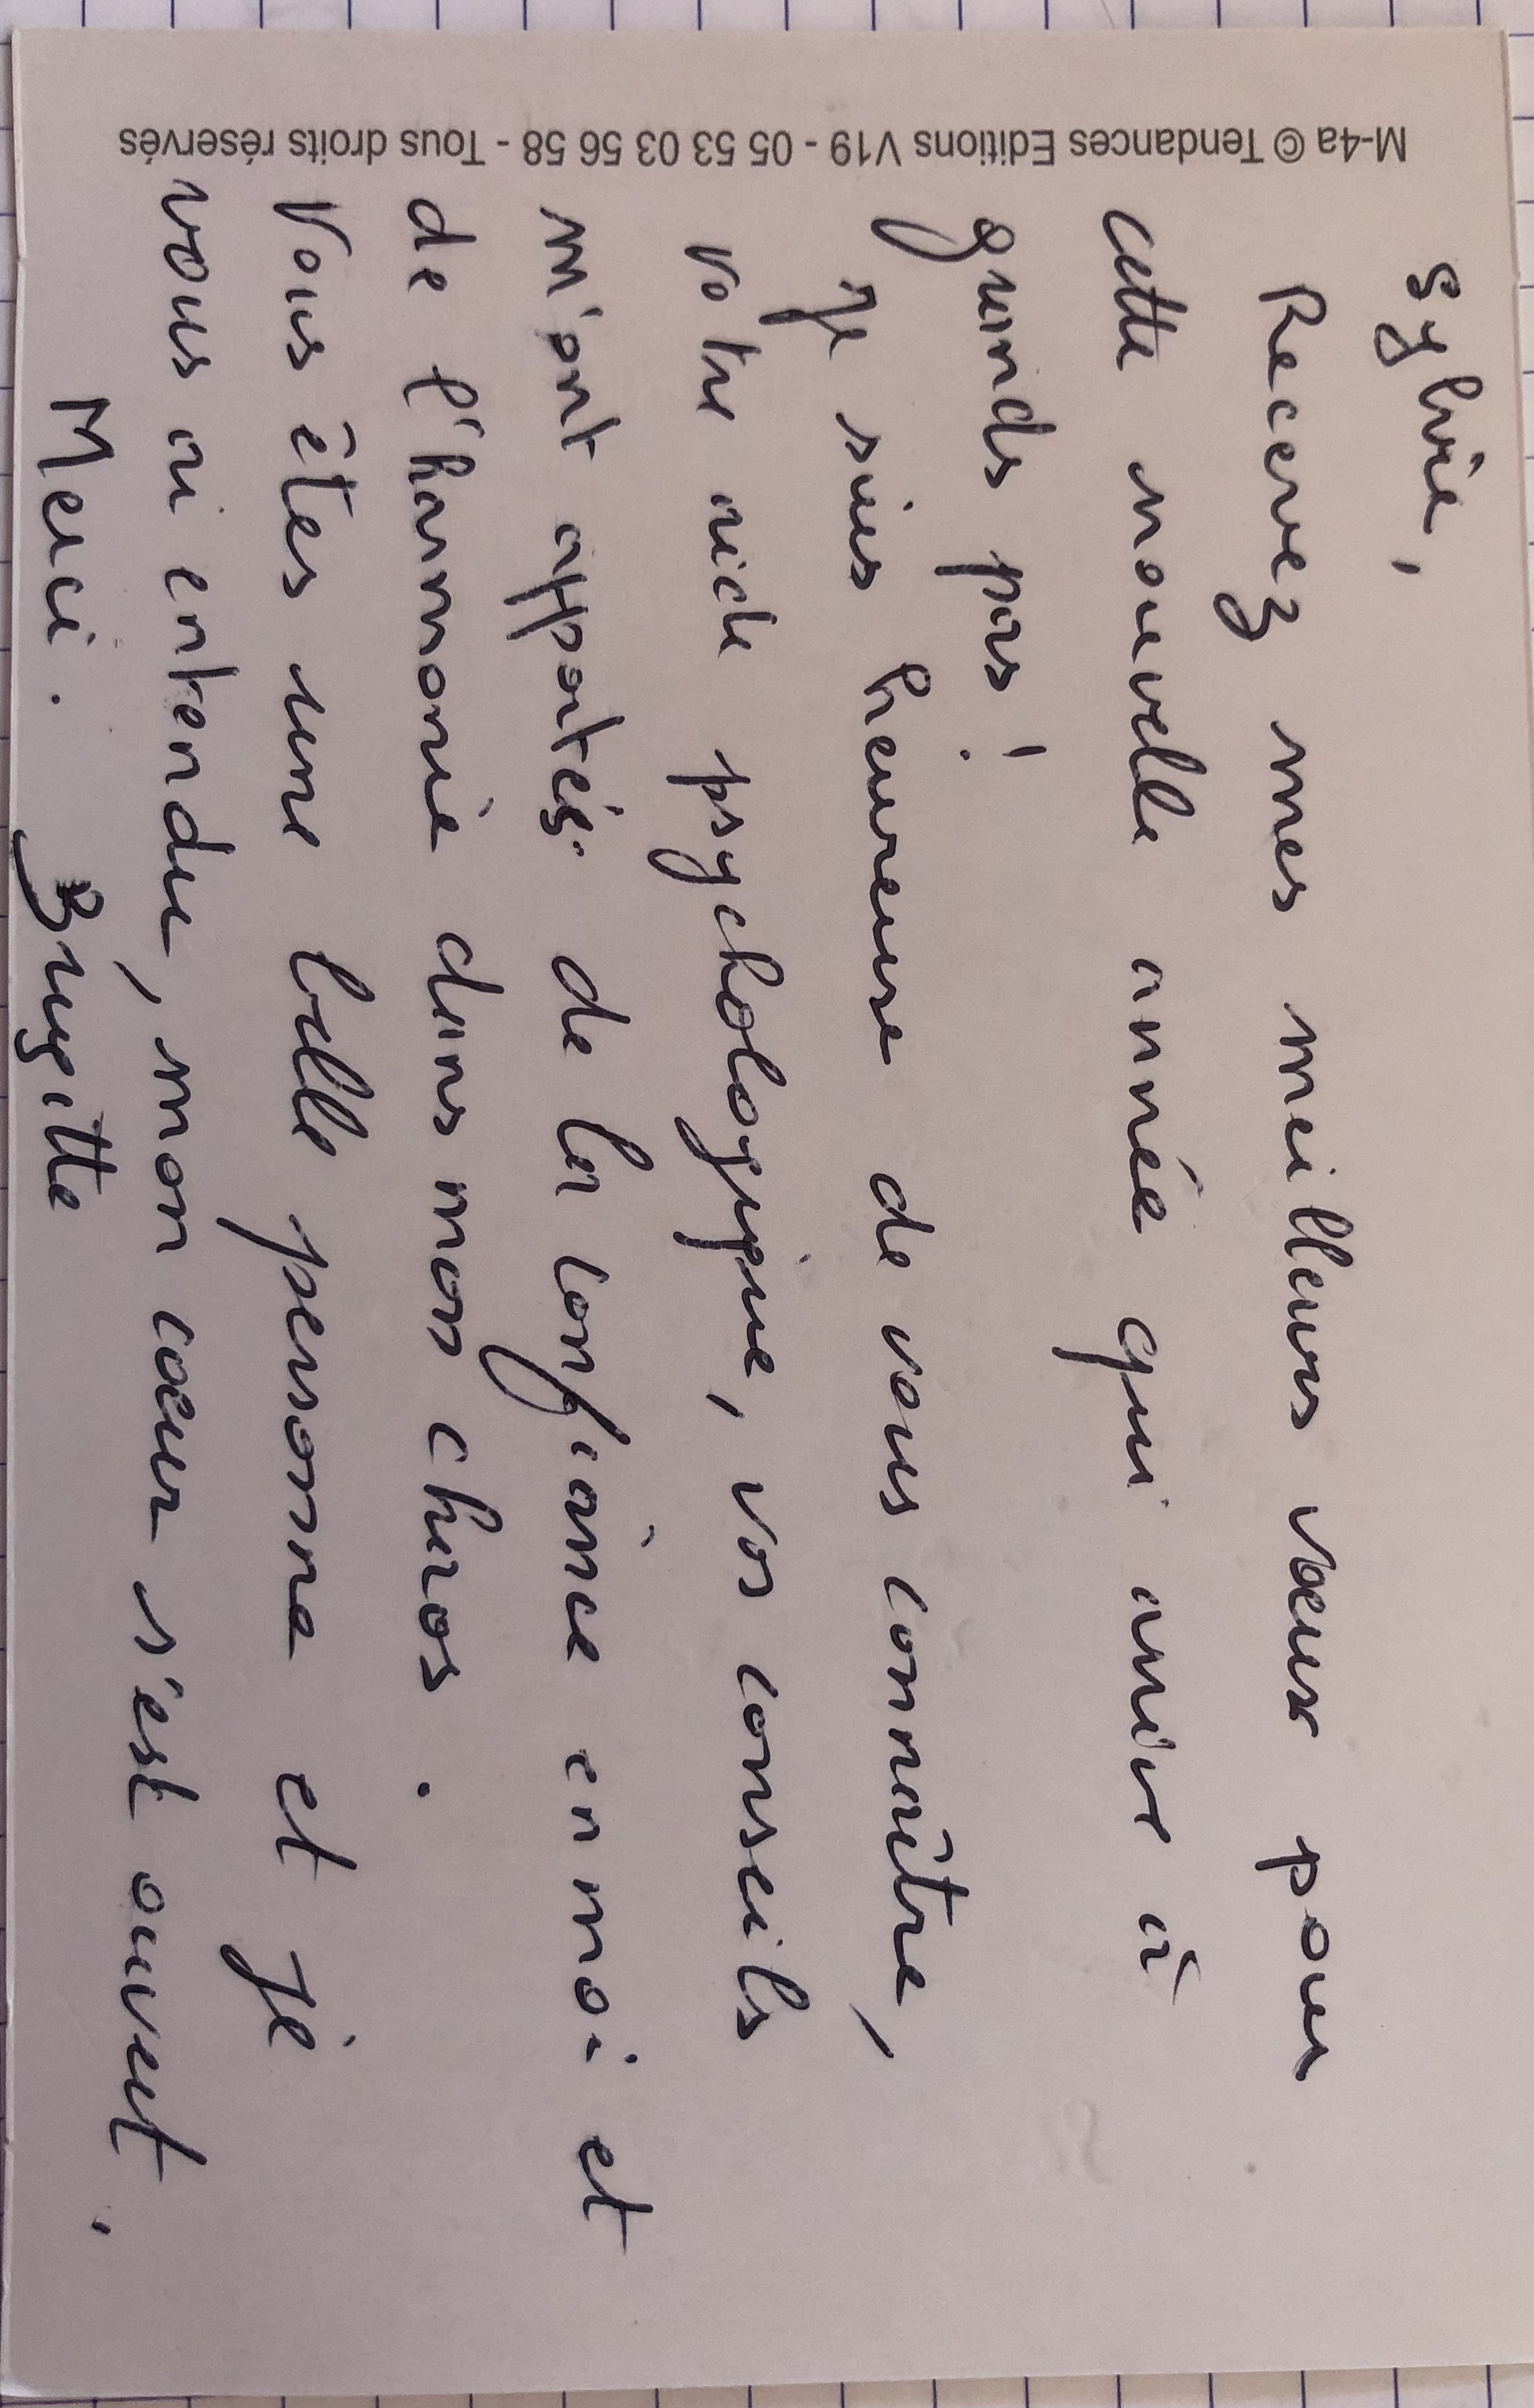 Sylvie,
Recevez mes meilleurs vœux pour
cette nouvelle année qui arrive à
grands pas !
Je suis heureuse de vous connaître,
votre aide psychologique, vos conseils
m'ont apportés de la confiance en moi et
de l'harmonie dans mon chaos.
Vous êtes une belle personne et je
vous ai entendue, mon cœur s'est ouvert.
Merci. Brigitte
M-4a © Tendances Editions V19 - 05 53 03 56 58 - Tous droits réservés